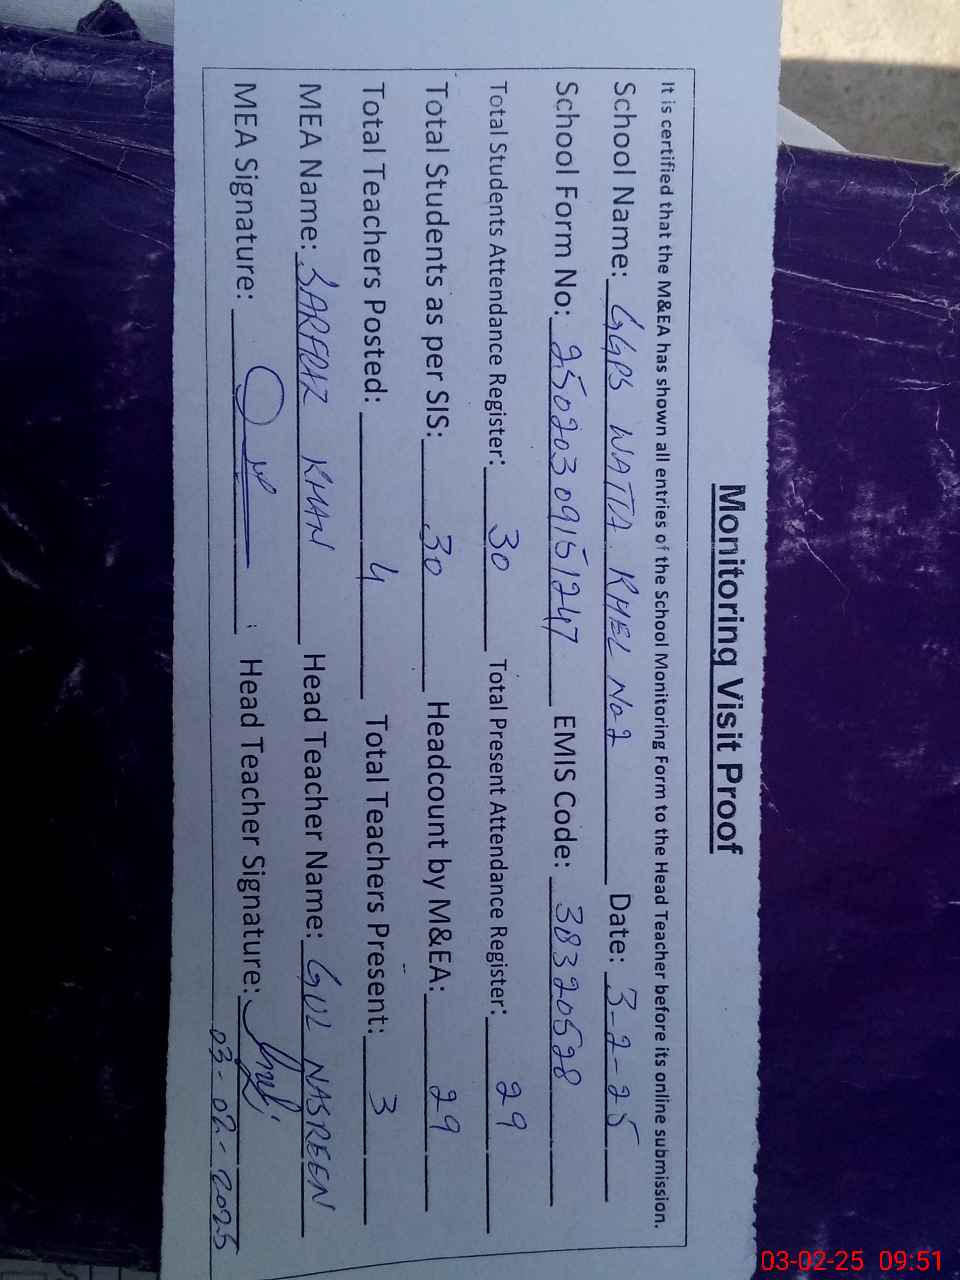 Monitoring Visit Proof
It is certified that the M&EA has shown all entries of the School Monitoring Form to the Head Teacher before its online submission.
School Name: GGPS WATTA KHEL No2 Date: 3-2-25
School Form No: 25020309151247 EMIS Code: 38320528
Total Students Attendance Register: 30 Total Present Attendance Register: 29
Total Students as per SIS: 30 Headcount by M&EA: 29
Total Teachers Posted: 4 Total Teachers Present: 3
MEA Name: SARFOZ KHAN Head Teacher Name: GUL NASREEN
MEA Signature: Head Teacher Signature:
03-02-2025
03-02-25 09:51